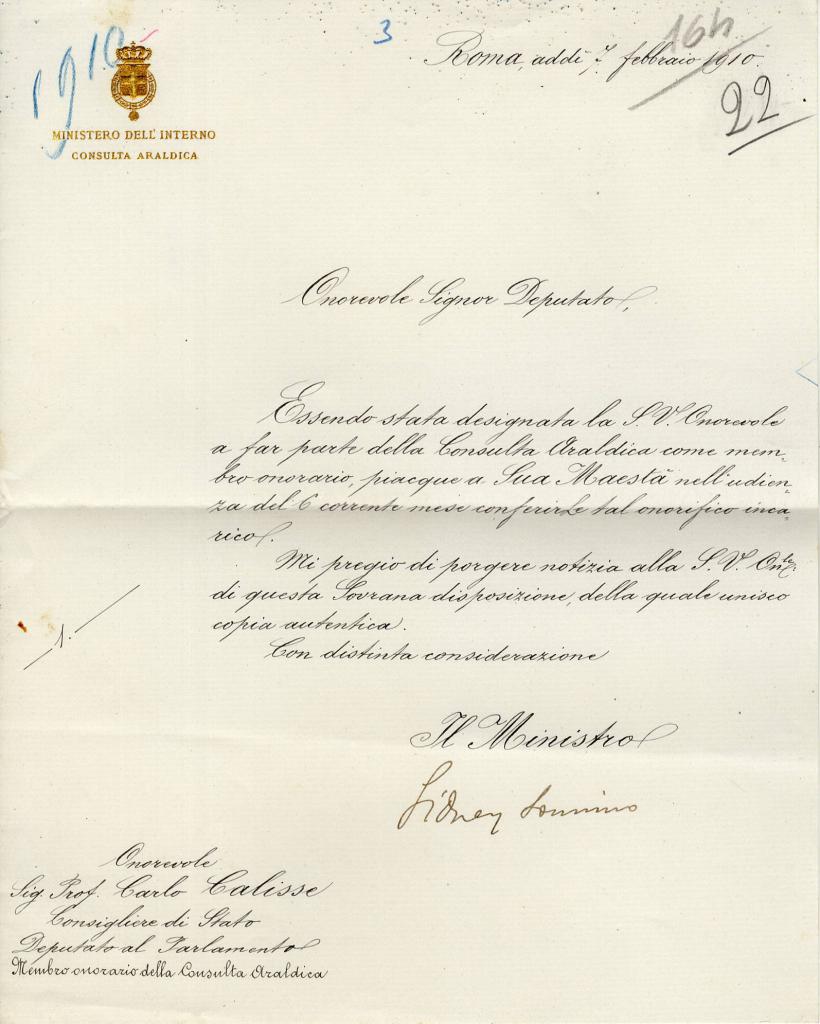 1910
3
16h
Roma, addì 7 febbraio 1910.
22
MINISTERO DELL'INTERNO
CONSULTA ARALDICA
Onorevole Signor Deputato,
Essendo stata designata la S. V. Onorevole
a far parte della Consulta Araldica come mem-
bro onorario, piacque a Sua Maestà nell'udien-
za del 6 corrente mese conferirLe tal onorifico inca-
rico.
Mi pregio di porgere notizia alla S. V. On.le
di questa Sovrana disposizione, della quale unisco
copia autentica.
1.
Con distinta considerazione
Il Ministro
Sidney Sonnino
Onorevole
Sig. Prof. Carlo Calisse
Consigliere di Stato
Deputato al Parlamento
Membro onorario della Consulta Araldica